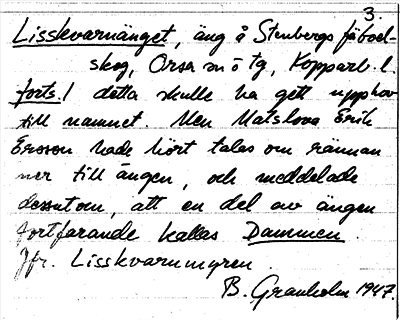 3.
Lisskvarnänget, äng å Stenbergs fäbod-
skog, Orsa sn o tg, Kopparb. l.
forts./ detta skulle ha gett upphov
till namnet. Men Matslova Erik
Ersson hade hört talas om rännan
ner till ängen, och meddelade
dessutom, att en del av ängen
fortfarande kallas Dammen.
Jfr. Lisskvarnmyren
B. Granholm 1947.